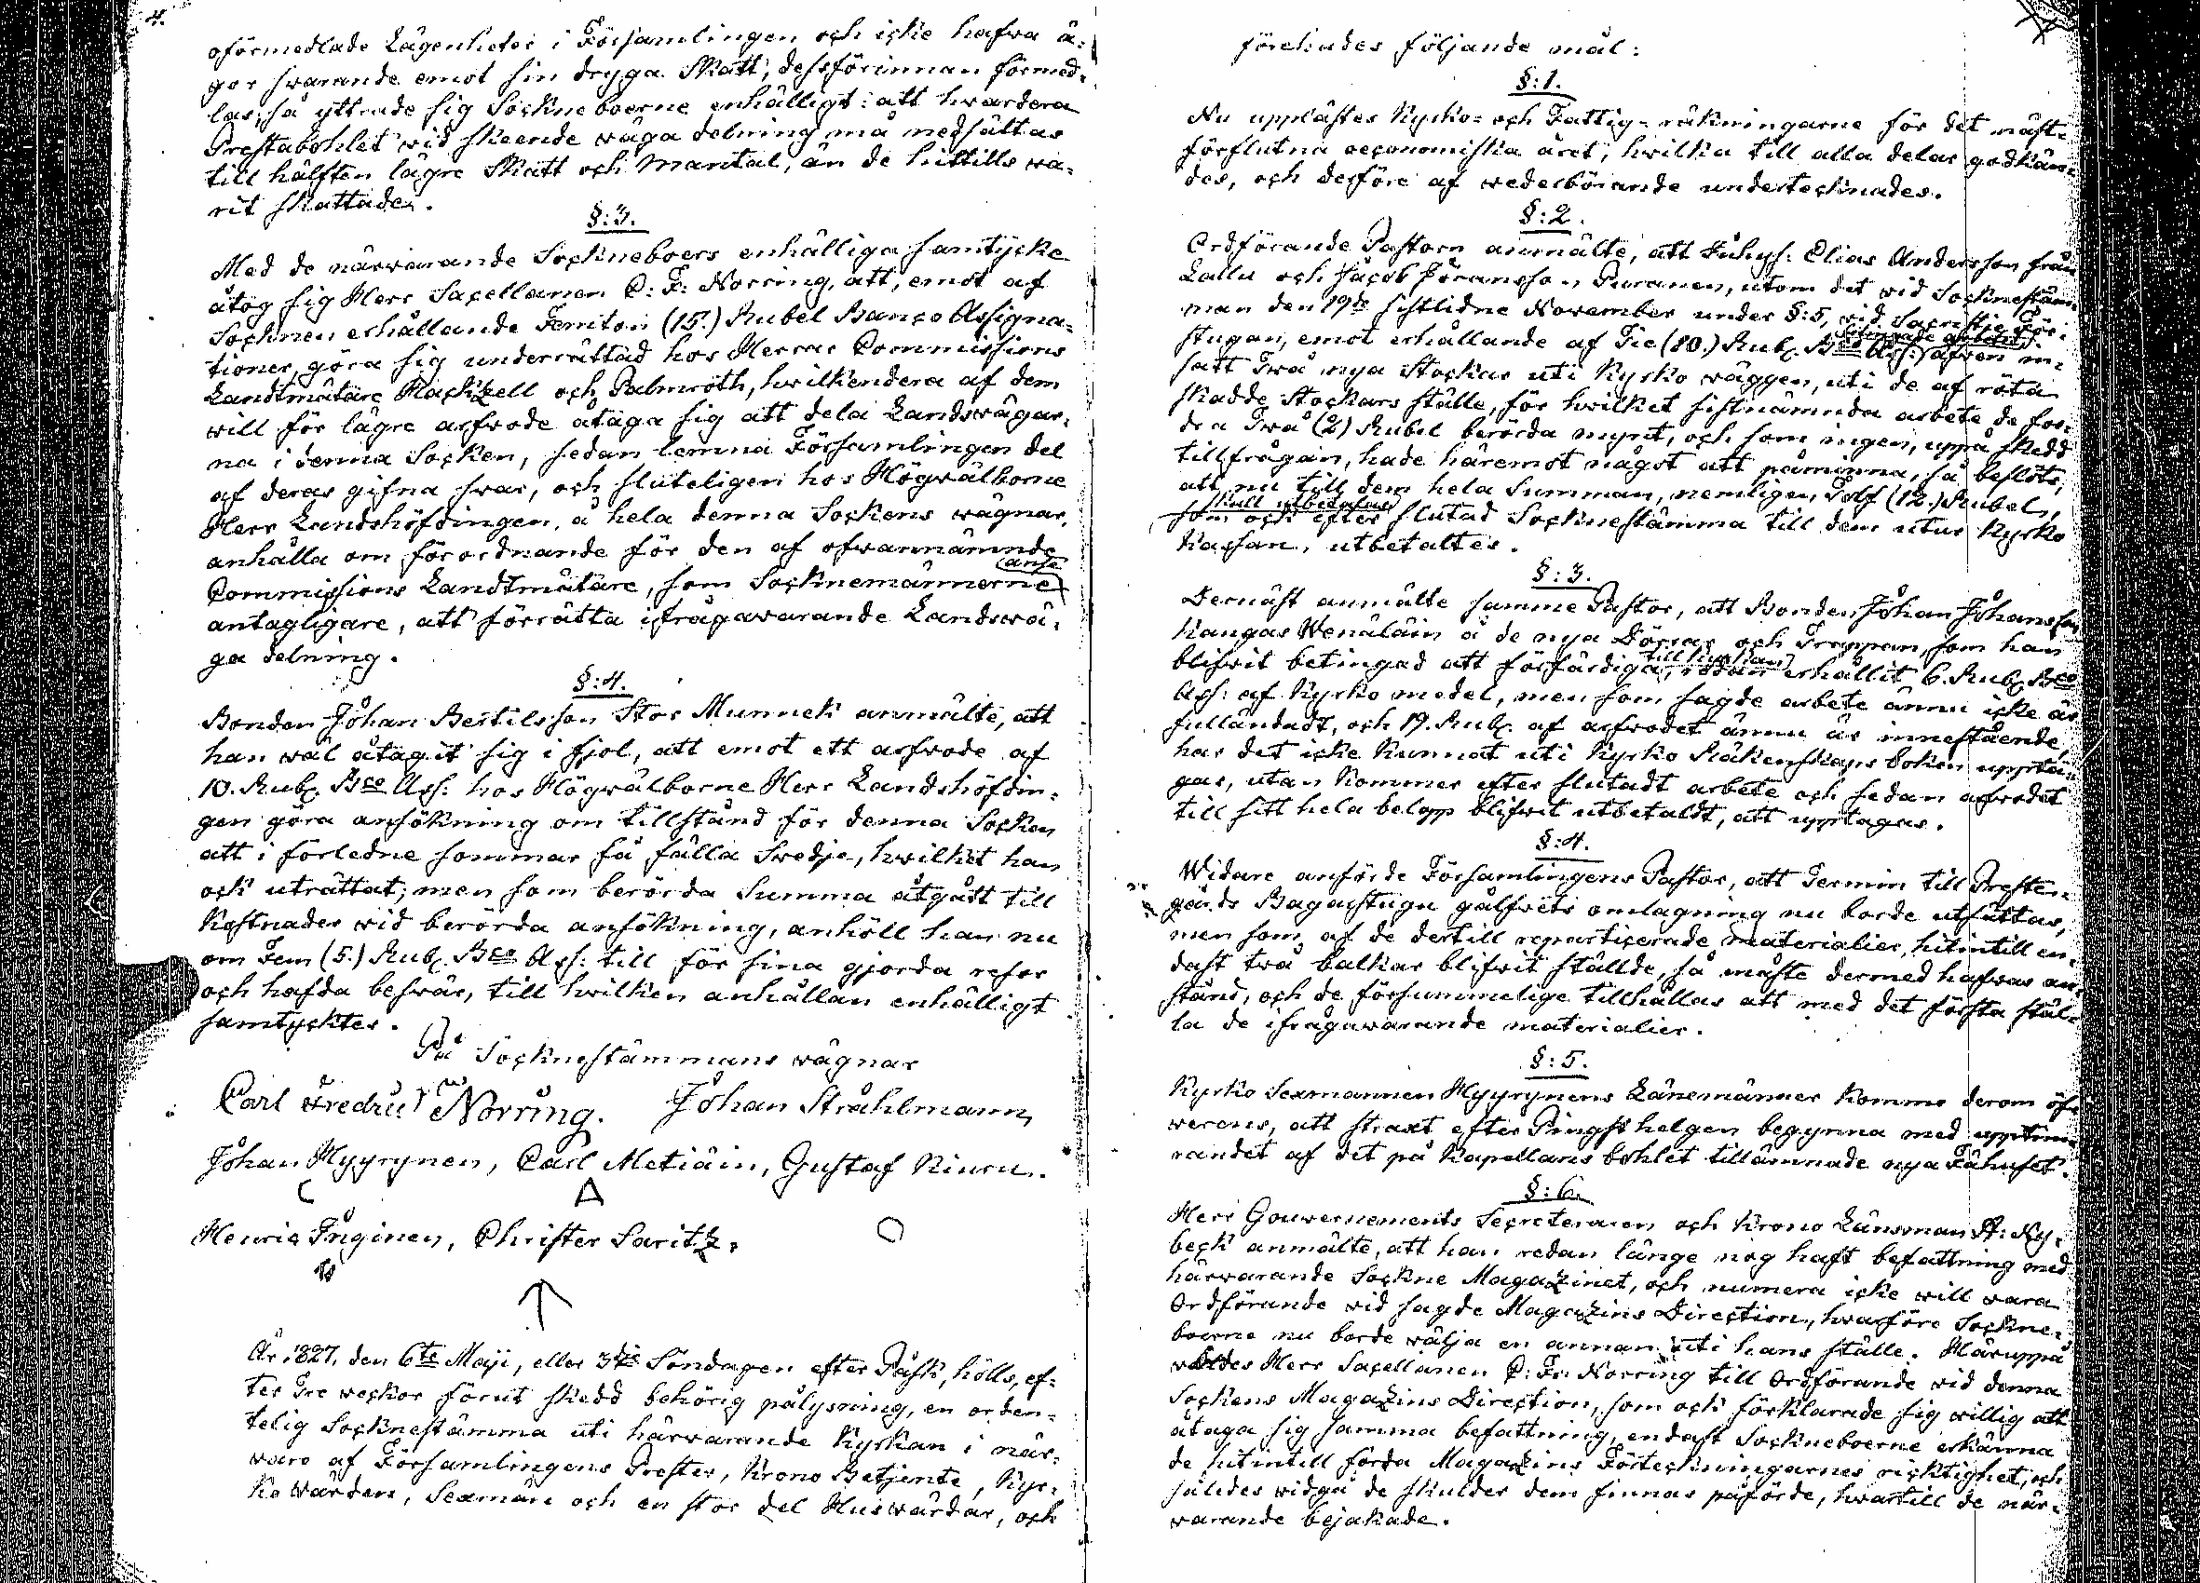 4.
oförmedlade Lägenheter i Församlingen och icke hafva å-
gor svarande emot sin dryga Skatt, dessförinnan förmed-
las, så yttrade sig Sockneboerne enhälligt: att hvardera
Prestabohlet vid skeende väga delning må nedsättas
till hälften lägre Skatt och Mantal, än de hittills va-
rit skattade.
§:3.
Med de närvarande Sockneboers enhälliga samtycke
åtog sig Herr Sacellanen C: F: Norring, att, emot af
Socknen erhållande Femton (15.) Rubel Banco Assigna-
tioner, göra sig underrättad hos Herrar Commissions
Landtmätare Hackzell och Palmroth, hvilkendera af dem
will för lägre arfvode åtaga sig att dela Landsvägar-
na i denna Socken, sedan lemna Församlingen del
af deras gifna svar, och sluteligen hos Högvälborne
Herr Landshöfdingen, å hela denna Sockens vägnar,
anhålla om förordnande för den af ofvannämnde
Commissions Landtmätare, som Socknemännerne anse
antagligare, att förrätta ifrågavarande Landsvä-
ga delning.
§:4.
Bonden Johan Bertilsson Stor Munnek anmälte, att
han väl åtagit sig i fjol, att emot ett arfvode af
10. Rub. Bco Ass: hos Högvälborne Herr Landshöfdin-
gen göra ansökning om tillstånd för denna Socken
att i förledne sommar få fälla Svedje, hvilket han
ock uträttat; men som berörda Summa åtgått till
Kostnader vid berörda ansökning, anhöll han nu
om Fem (5.) Rub. Bco Ass: till för sina gjorda resor
och hafda besvär, till hvilken anhållan enhälligt
samtycktes.
På Socknestämmans vägnar
Carl Fredric Norring. Johan Stråhlmann,
Johan Hyyrynen, Carl Metiäin, Gustaf Kiuru.
Henric Inginen, Christer Saritz.
År 1827, den 6te Maji, eller 3dje Söndagen efter Påsk, hölls, ef-
ter Tre veckor förut skedd behörig pålysning, en orden-
telig Socknestämma uti härvarande Kyrkan i när-
varo af Församlingens Prester, Krono Betjente, Kyr-
ko Värden, Sexmän och en stor del Husvärdar, och
förehades följande mål:
§:1.
Nu upplästes Kyrko- och Fattig-räkningarne för det näst-
förflutna oeconomiska året, hvilka till alla delar godkän-
des, och desföre af vederbörande undertecknades.
§:2.
Ordförande Pastorn anmälte, att Inhys: Elias Andersson från
Lallu och Jacob Jöransson Puranen, utom det vid Socknestäm-
man den 19de sistlidne November under §:5, vid Sacristie För-
stugan, emot erhållande af Tie (10.) Rub. Bco Ass: äfven in-
satt Två nya Stockar uti Kyrko väggen, uti de af röta
skadde Stockars ställe, för hvilket sistnämnda arbete de for-
dra Två (2) Rubel berörda mynt, och som ingen, uppå skedd
tillfrågan, hade häremot något att påminna, så beslöts,
att nu till dem hela Summan, nemligen Tolf (12.) Rubel,
skull utbetalas
som ock efter slutad Socknestämma till dem utur Kyrko
Kassan, utbetaltes.
§:3.
Dernäst anmälte samme Pastor, att Bonden Johan Johansson
Kangas Wenäläin å de nya Dörrar och Trappan, som han
blifvit betingad att förfärdiga till kyrkan, redan erhållit 6. Rub. Bco
Ass: af Kyrko medel, men som sagde arbete ännu icke är
fulländadt, och 19. Rub. af arfvodet ännu är innestående,
har det icke kunnat uti Kyrko Räkenskaps boken uppta-
gas, utan kommer efter slutadt arbete och sedan arfvodet
till sitt hela belopp blifvit utbetaldt, att upptagas.
§:4.
Widare anförde Församlingens Pastor, att Termin till Presten-
gårds Bagarstugu gålfvets omlagning nu borde utsättas,
men som, af de dertill repartiserade materialier, hitintill en-
dast två balkar blifvit ställde, så måste dermed hafvas an-
stånd, och de försummelige tillhållas att med det första ställ-
la de ifrågavarande materialier.
§:5.
Kyrko Sexmannen Hyyrynens Länemänner kommo derom öf-
verens, att straxt efter Pingst helgen begynna med upptim-
randet af det på Kapellans bohlet tillämnade nya Fähuset.
§:6.
Herr Gouvernements Secreteraren och Krono Länsman A: Ny-
beck anmälte, att han redan länge nog haft befattning med
härvarande Sockne Magazinet, och numera icke will vara
Ordförande vid sagde Magazins Direction, hvarföre Sockne-
boerne nu borde välja en annan uti hans ställe. Häruppå
valdes Herr Sacellanen C: Fr: Norring till Ordförande vid denna
Sockens Magazins Direction, som ock förklarade sig willig att
åtaga sig samma befattning, endast Sockneboerne erkänna
de hitintill förda Magazins Förteckningarnes richtighet, och
således vidgå de skulder dem finnas påförde, hvartill de när-
varande bejakade.